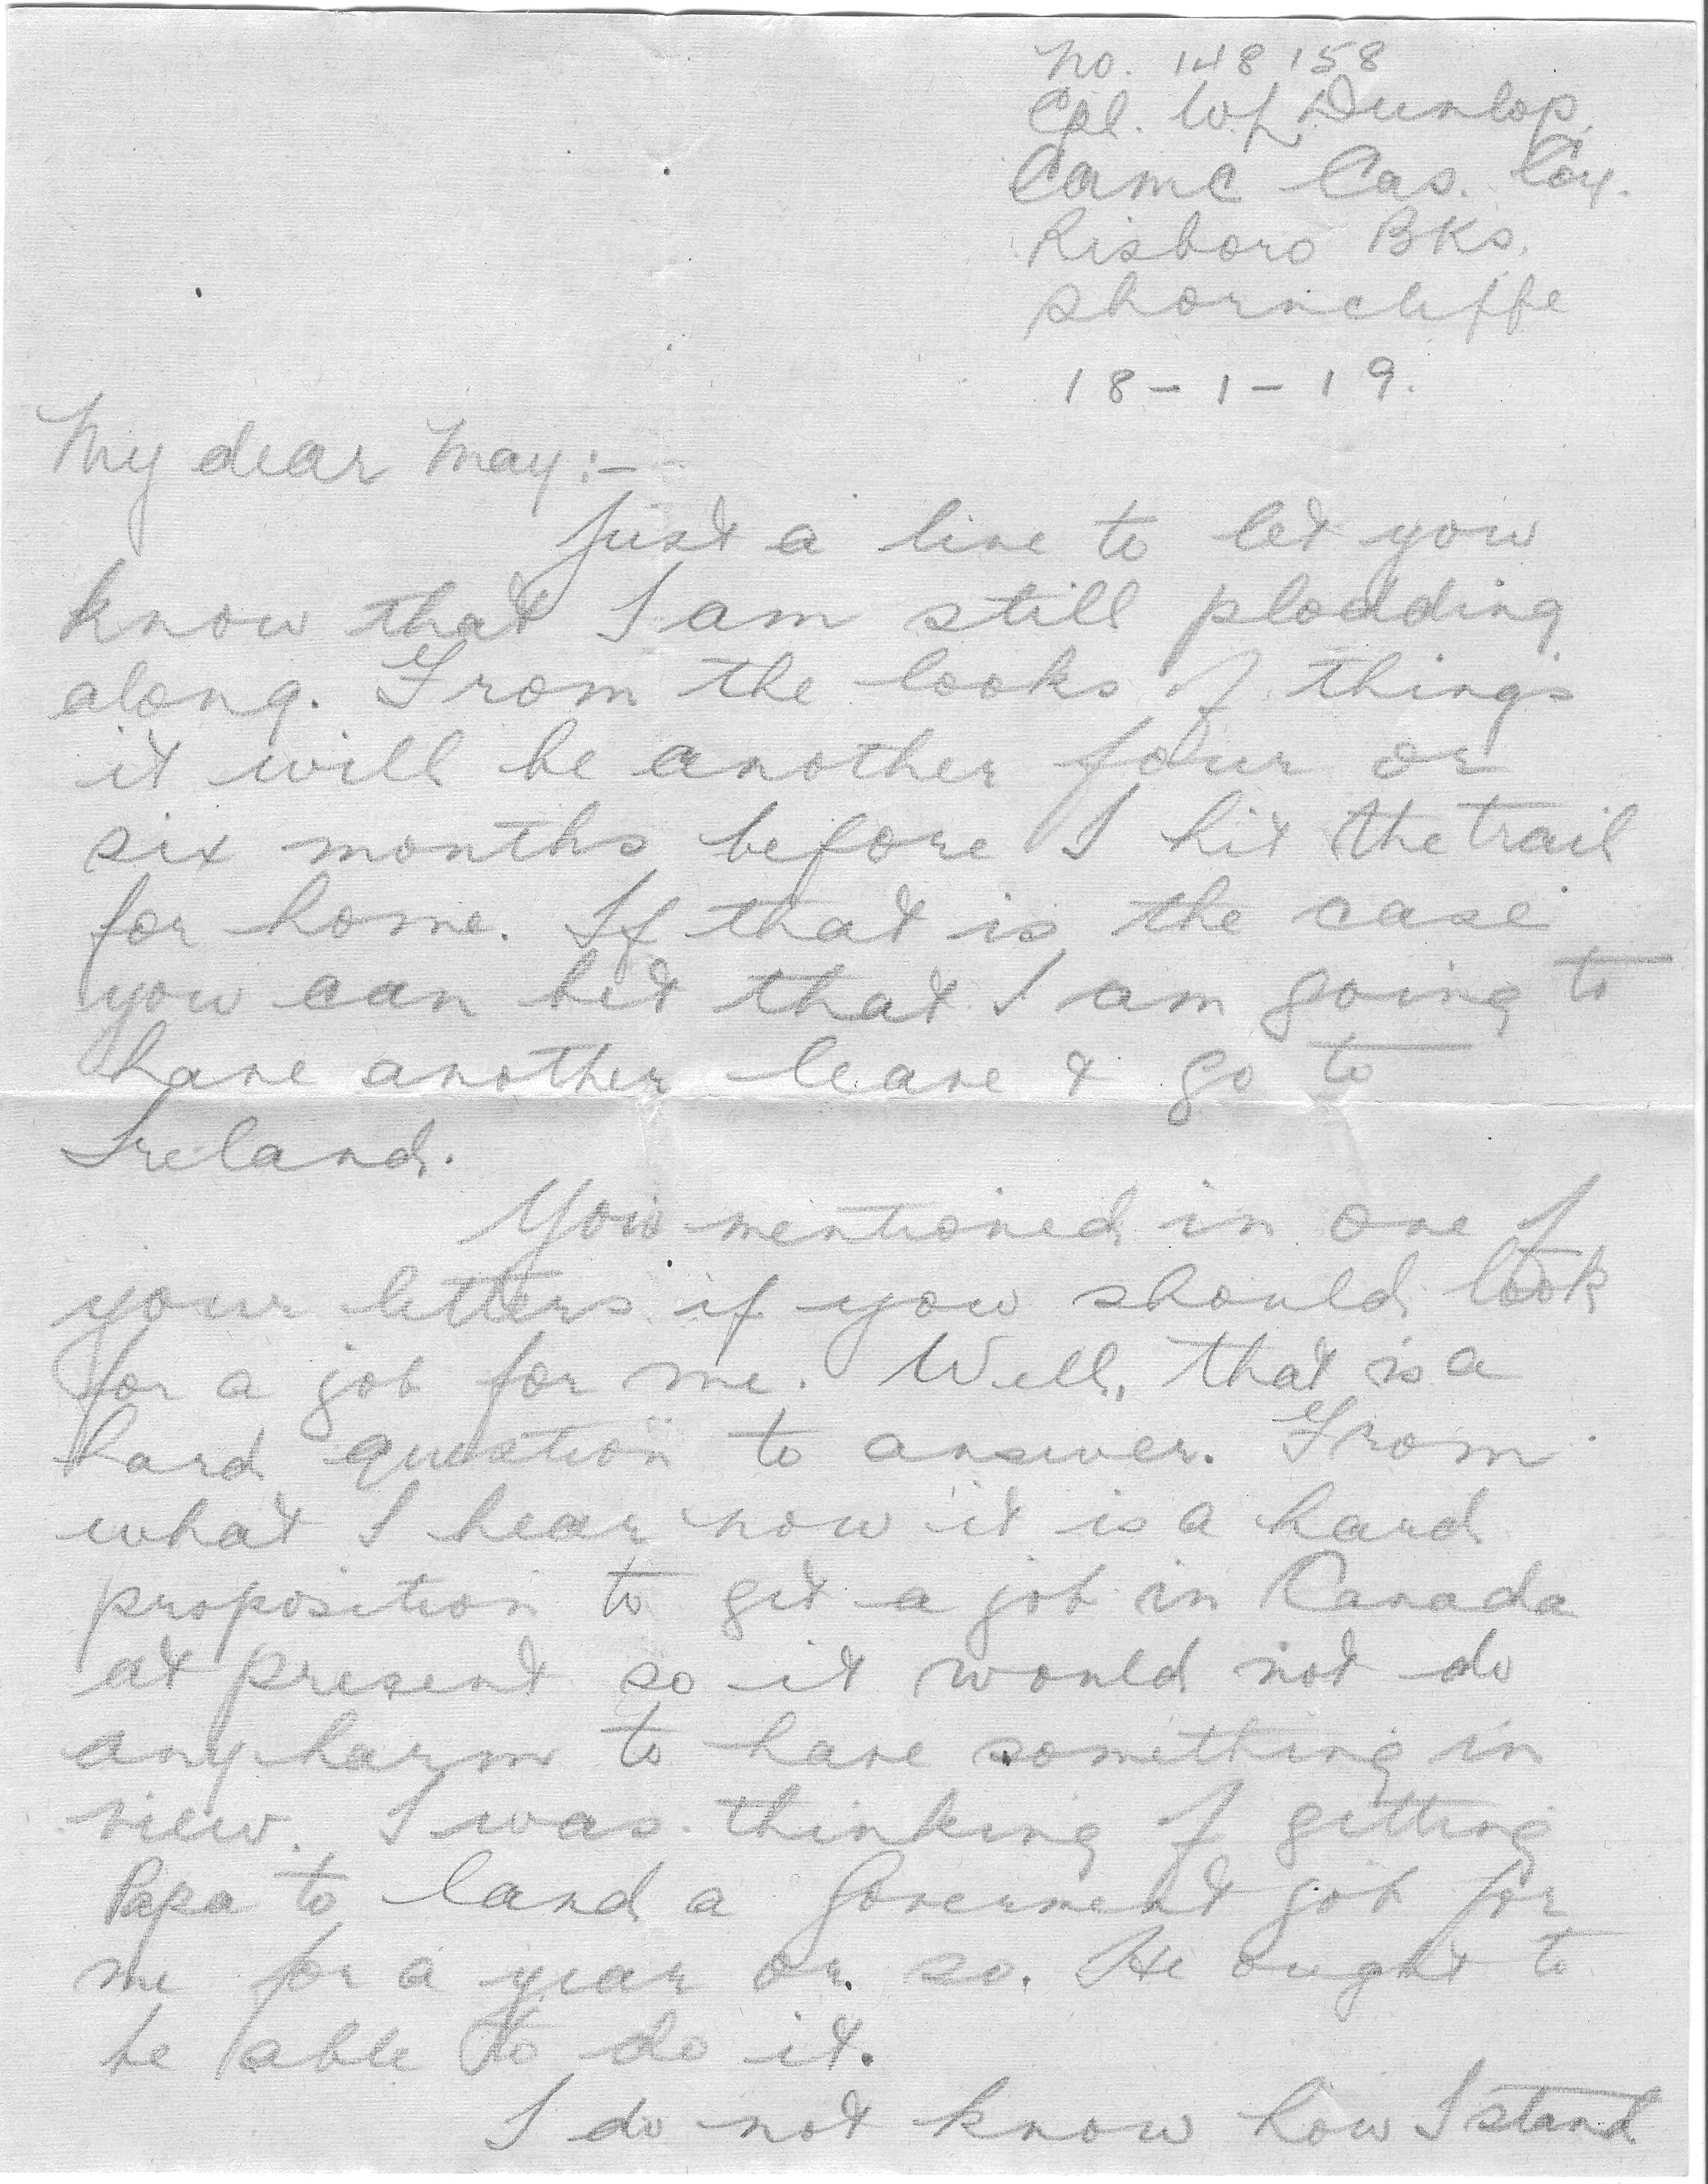 No. 148158
Cpl. W.L. Dunlop.
CAMC Cas. Coy.
Risboro Bks.
Shorncliffe
18-1-19.
My dear May:-
Just a line to let you
know that I am still plodding
along. From the looks of things
it will be another four or
six months before I hit the trail
for home. If that is the case
you can bet that I am going to
have another leave & go to
Ireland.
You mentioned in one of
your letters if you should look
for a job for me. Well, that is a
hard question to answer. From
what I hear now it is a hard
proposition to get a job in Canada
at present so it would not do
any harm to have something in
view. I was thinking of getting
Papa to land a Goverment job for
me for a year or so. He ought to
be able to do it.
I do not know how I stand